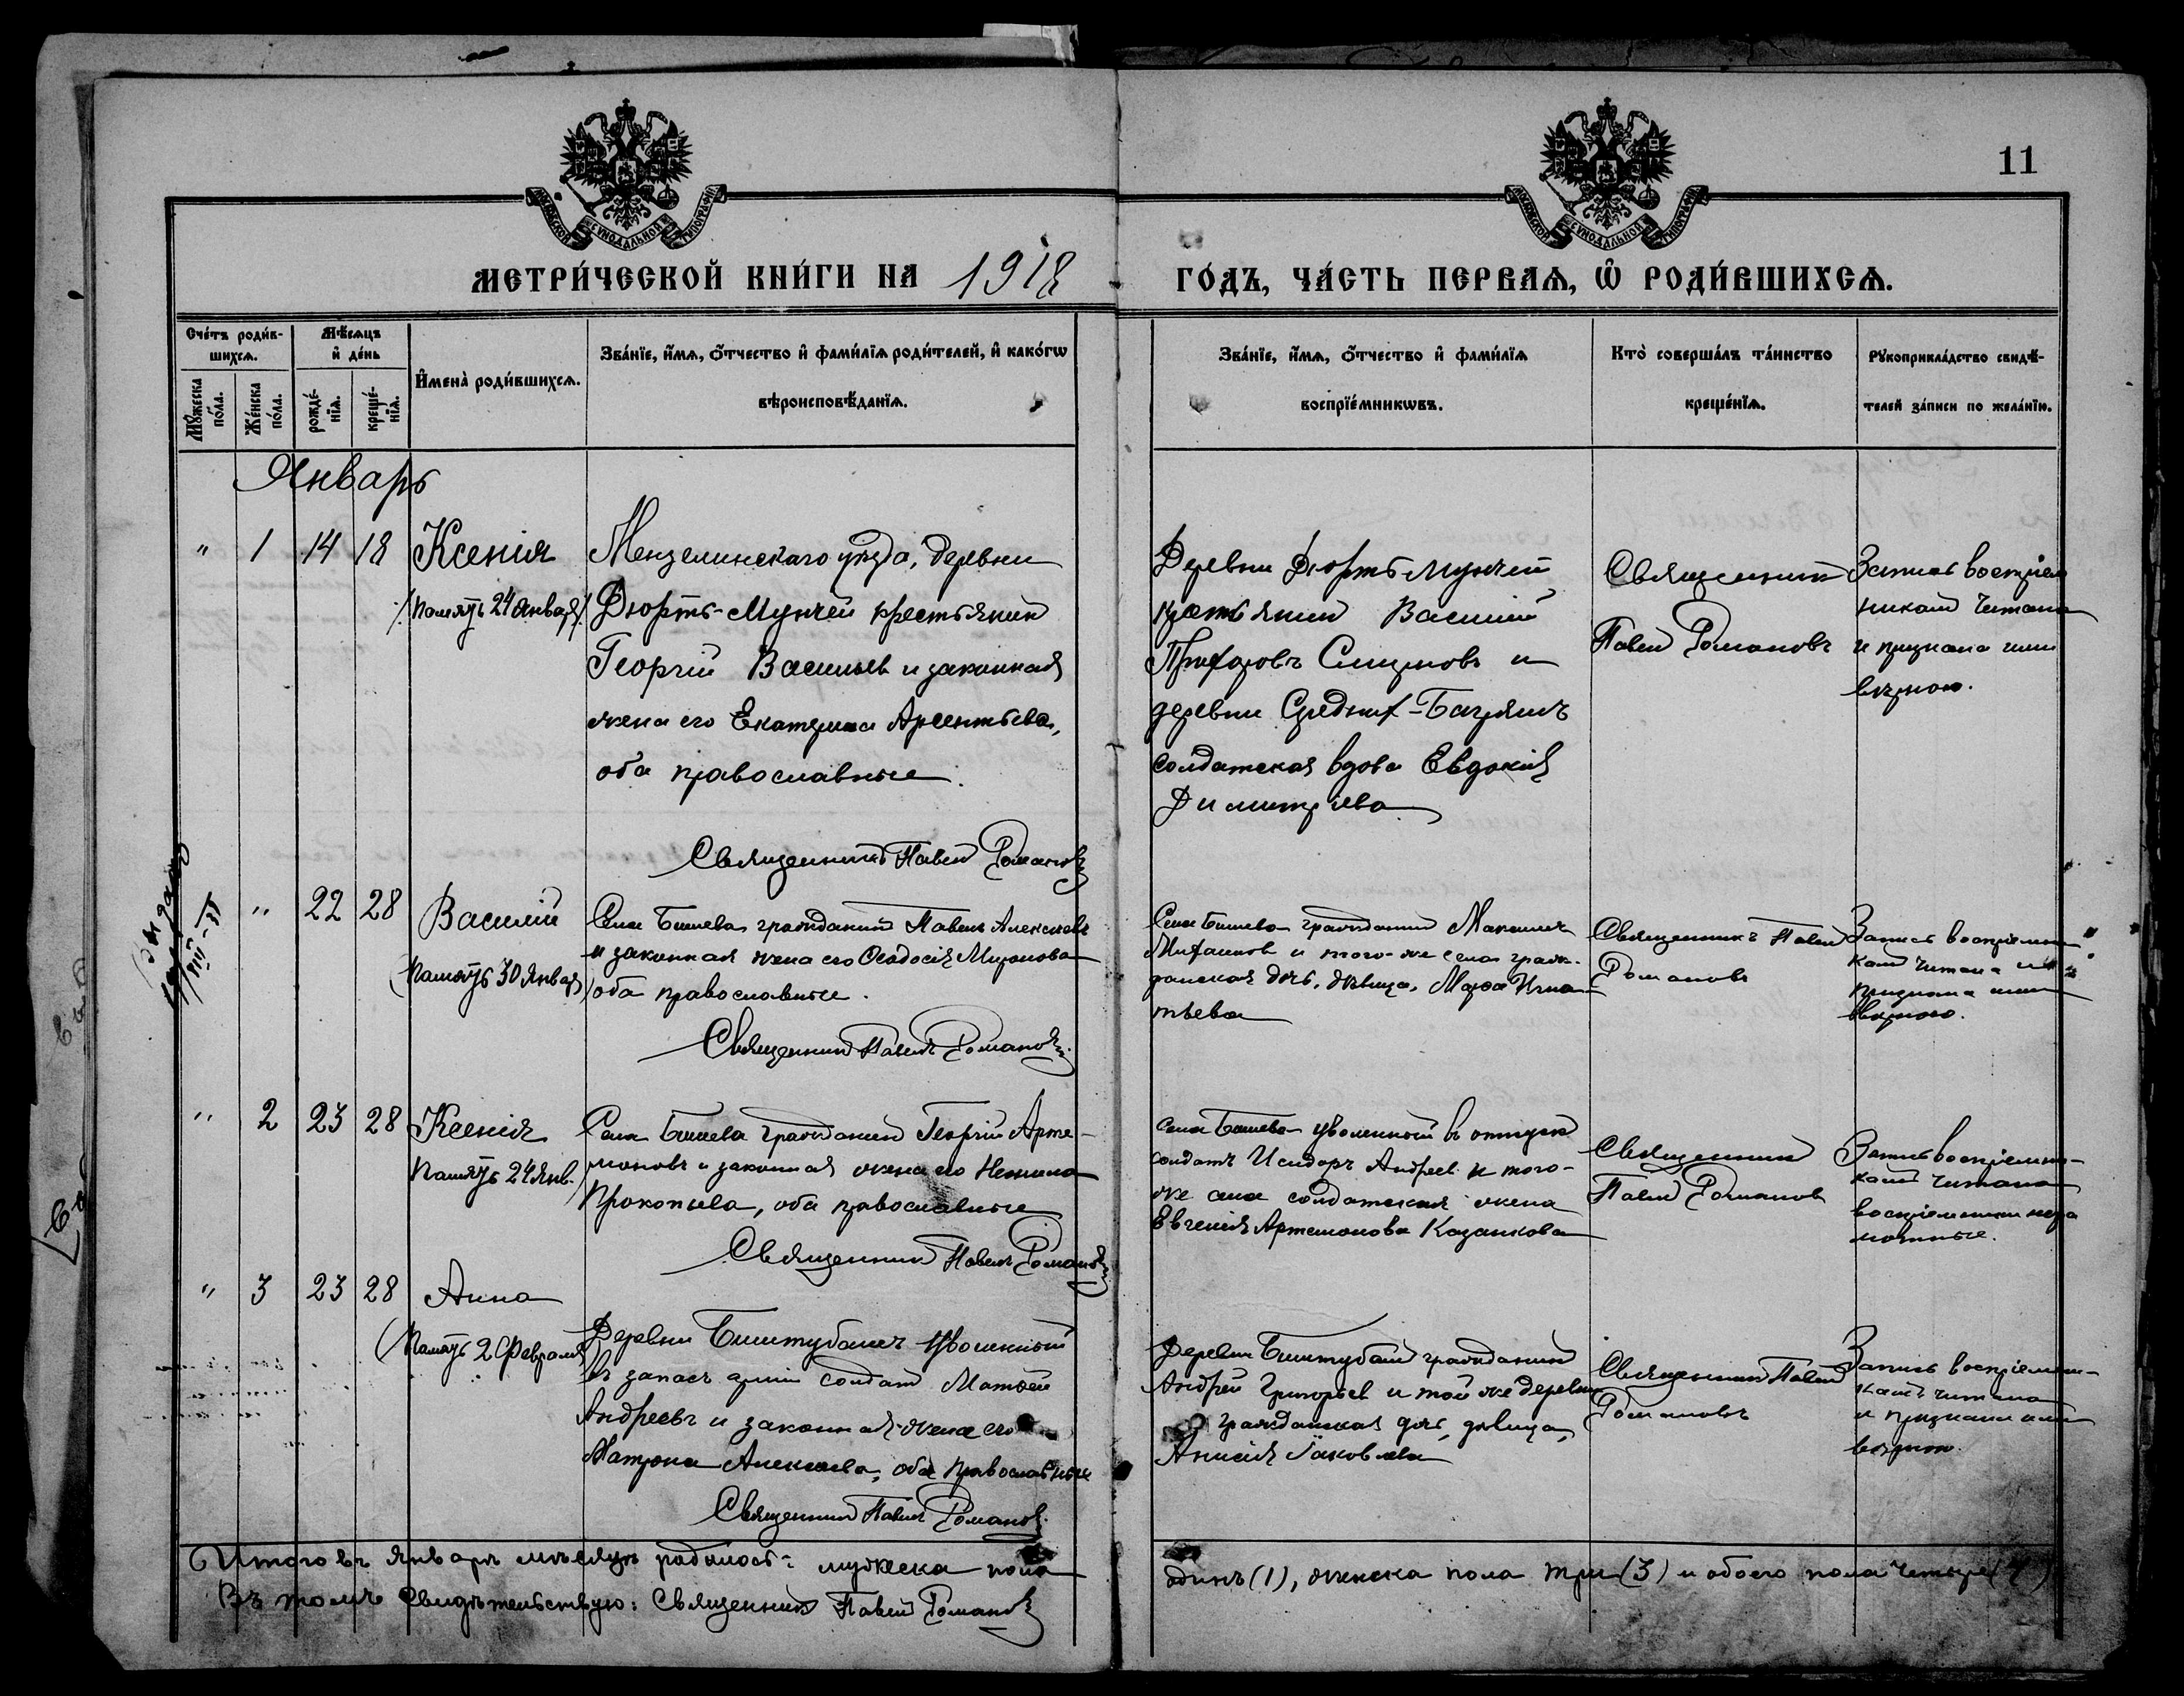 11
МЕТРИ́ЧЕСКОЙ КНИ́ГИ НА 1918
ГО́ДЪ, ЧА́СТЬ ПЕРВАѦ, Ѡ҃ РОДИ́ВШИХСѦ.
Счéтъ роди́в-
шихсѧ.
Мꙋ́жеска
по́ла.
Же́нска
по́ла.
Мѣ́сѧцъ
и҆ де́нь
рожде́-
нїѧ.
креще́-
нїѧ.
И҆мена̀ роди́вшихсѧ.
Зва́нїе, и҆́мѧ, ѻ҆́тчество и҆ фами́лїѧ роди́телей, и҆ како́гѡ
вѣроисповѣ́данїѧ.
Зва́нїе, и҆́мѧ, ѻ҆́тчество и҆ фами́лїѧ
воспрїе́мникѡвъ.
Кто̀ соверша́лъ та́инство
креще́нїѧ.
Рꙋкоприкла́дство свидѣ́-
телей за́писи по жела́нїю.
Январь
" 1 14 18 Ксенія
/Память 24 Января/
Мензелинскаго уѣзда, деревни
Дюртъ-Мунчей крестьянин
Георгій Васильев и законная
жена его Екатерина Арсентьева,
оба православные.
Священникъ Павел Романов
Деревни Дюртъ Мунчей
крестьянин Василий
Смирновъ и
деревни Средних-Багряшъ
солдатская вдова Евдокія
Димитріева
Священник
Павел Романовъ
Запись воспріем
никам читана
и признана ими
вѣрною.
" 22 28 Василій
(Память 30 Января)
Села Бишева гражданин Павелъ Алексѣевъ
и законная жена его Ѳеодосія Миронова
оба православные.
Священник Павелъ Романов
Села Бишева гражданин Максимъ
Михайлов и того-же села граж-
данская дочь, дѣвица, Марѳа Игна
тьева
Священникъ Павел
Романовъ
Запись воспріемни
кам читана и
признана ими
вѣрною.
" 2 23 28 Ксенія
Память 24 Янв.
Села Бишева гражданин Георгій Арте-
моновъ и законная жена его Ненила
Прокопьева, оба православные
Священник Павелъ Романов
Села Бишева уволенный въ отпуск
солдатъ Исидоръ Андреев и того-
же села солдатская жена
Евгенія Артемонова Казанкова
Священник
Павел Романов
Запись воспріемни-
кам читана
воспріемники негра
мотные.
" 3 23 28 Анна
(Память 2 Февраля)
Деревни Биштубашъ уволенный
въ запасъ арміи солдат Матвей
Андреевъ и законная жена его
Матрона Алексѣева, оба православные
Священник Павелъ Романов
Деревни Биштубаш гражданин
Андрей Григорьев и той же деревни
гражданская дочь, дѣвица,
Анисія Іаковлева
Священник Павел
Романовъ
Запись воспріемни-
камъ читана
и признана ими
вѣрною.
Итого въ январѣ мѣсяцѣ родилось: мужеска пола
одинъ (1), женска пола три (3) и обоего пола четыре (4)
Въ томъ свидѣтельствую: Священник Павел Романов